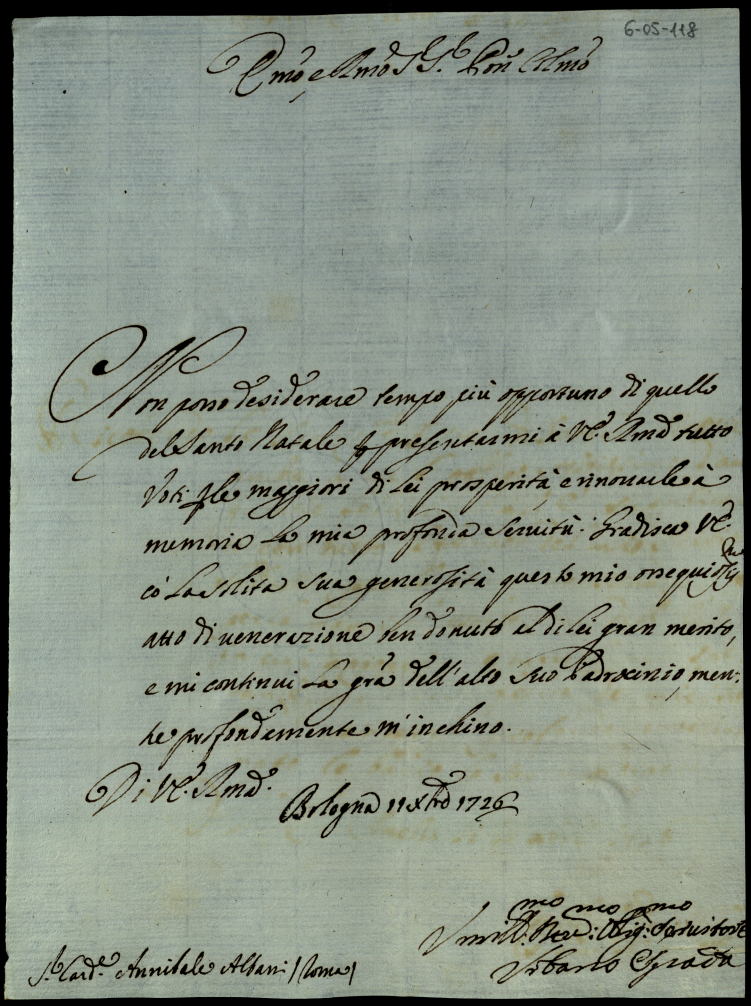 6-05-118
Emo, e Rmo Sr. Sr. Pron Colmo
Non posso desiderare tempo più opportuno di quello
del Santo Natale p presentarmi à V.E. Rma tutto
Voti p le maggiori di Lei prosperità, e rinovarle à
memoria La mia profonda Servitù. Gradisca V.E.
cò La solita sua generosità questo mio ossequiosmo
atto di venerazione ben dovuto al di Lei gran merito,
e mi continui La gra dell'alto suo Padrocinio, men-
tre profondamente m'inchino.
Di V.E. Rma.
Bologna 11 Xbre 1726
Umil.mo Rev.mo: Oblig.mo: Servitore
Urbano
Sr. Card.e Annibale Albani /Roma/